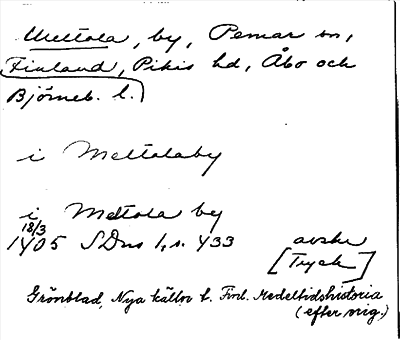 Mettola, by, Pemar sn,
Finland, Pikis hd, Åbo och
Björneb. l.
i Mettolaby
i Mettola by
18/3
1405 SDns 1, s. 433 avskr
[Tryck]
Grönblad, Nya källor t. Finl. Medeltidshistoria
(efter orig.)